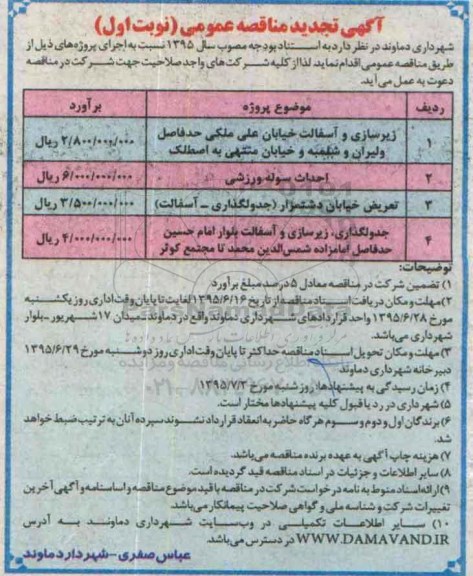 آگهی تجدید مناقصه عمومی (نوبت اول)
شهرداری دماوند در نظر دارد به استناد بودجه مصوب سال ۱۳۹۵ نسبت به اجرای پروژه‌های ذیل از
طریق مناقصه عمومی اقدام نماید. لذا از کلیه شرکت‌های واجد صلاحیت جهت شرکت در مناقصه
دعوت به عمل می‌آید.
ردیف موضوع پروژه برآورد
۱ زیرسازی و آسفالت خیابان علی ملکی حدفاصل ولیران و شلمبه و خیابان منتهی به اصطلک ۲/۸۰۰/۰۰۰/۰۰۰ ریال
۲ احداث سوله ورزشی ۶/۰۰۰/۰۰۰/۰۰۰ ریال
۳ تعریض خیابان دشتمزار (جدولگذاری ـ آسفالت) ۳/۵۰۰/۰۰۰/۰۰۰ ریال
۴ جدولگذاری، زیرسازی و آسفالت بلوار امام حسین حدفاصل امامزاده شمس‌الدین محمد تا مجتمع کوثر ۴/۰۰۰/۰۰۰/۰۰۰ ریال
توضیحات:
۱) تضمین شرکت در مناقصه معادل ۵ درصد مبلغ برآورد
۲) مهلت و مکان دریافت اسناد مناقصه از تاریخ ۱۳۹۵/۶/۱۶ لغایت تا پایان وقت اداری روز یکشنبه
مورخ ۱۳۹۵/۶/۲۸ واحد قراردادهای شهرداری دماوند واقع در دماوند ـ میدان ۱۷ شهریور ـ بلوار
شهرداری می‌باشد.
۳) مهلت و مکان تحویل اسناد مناقصه حداکثر تا پایان وقت اداری روز دوشنبه مورخ ۱۳۹۵/۶/۲۹
دبیرخانه شهرداری دماوند
۴) زمان رسیدگی به پیشنهادها: روز شنبه مورخ ۱۳۹۵/۷/۳
۵) شهرداری در رد یا قبول کلیه پیشنهادها مختار است.
۶) برندگان اول و دوم و سوم هرگاه حاضر به انعقاد قرارداد نشوند سپرده آنان به ترتیب ضبط خواهد
شد.
۷) هزینه چاپ آگهی به عهده برنده مناقصه می‌باشد.
۸) سایر اطلاعات و جزئیات در اسناد مناقصه قید گردیده است.
۹) ارائه اسناد منوط به نامه درخواست شرکت در مناقصه با قید موضوع مناقصه و اساسنامه و آگهی آخرین
تغییرات شرکت و شناسه ملی و گواهی صلاحیت پیمانکار می‌باشد.
۱۰) سایر اطلاعات تکمیلی در وب‌سایت شهرداری دماوند به آدرس
WWW.DAMAVAND.IR در دسترس می‌باشد.
عباس صفری - شهردار دماوند